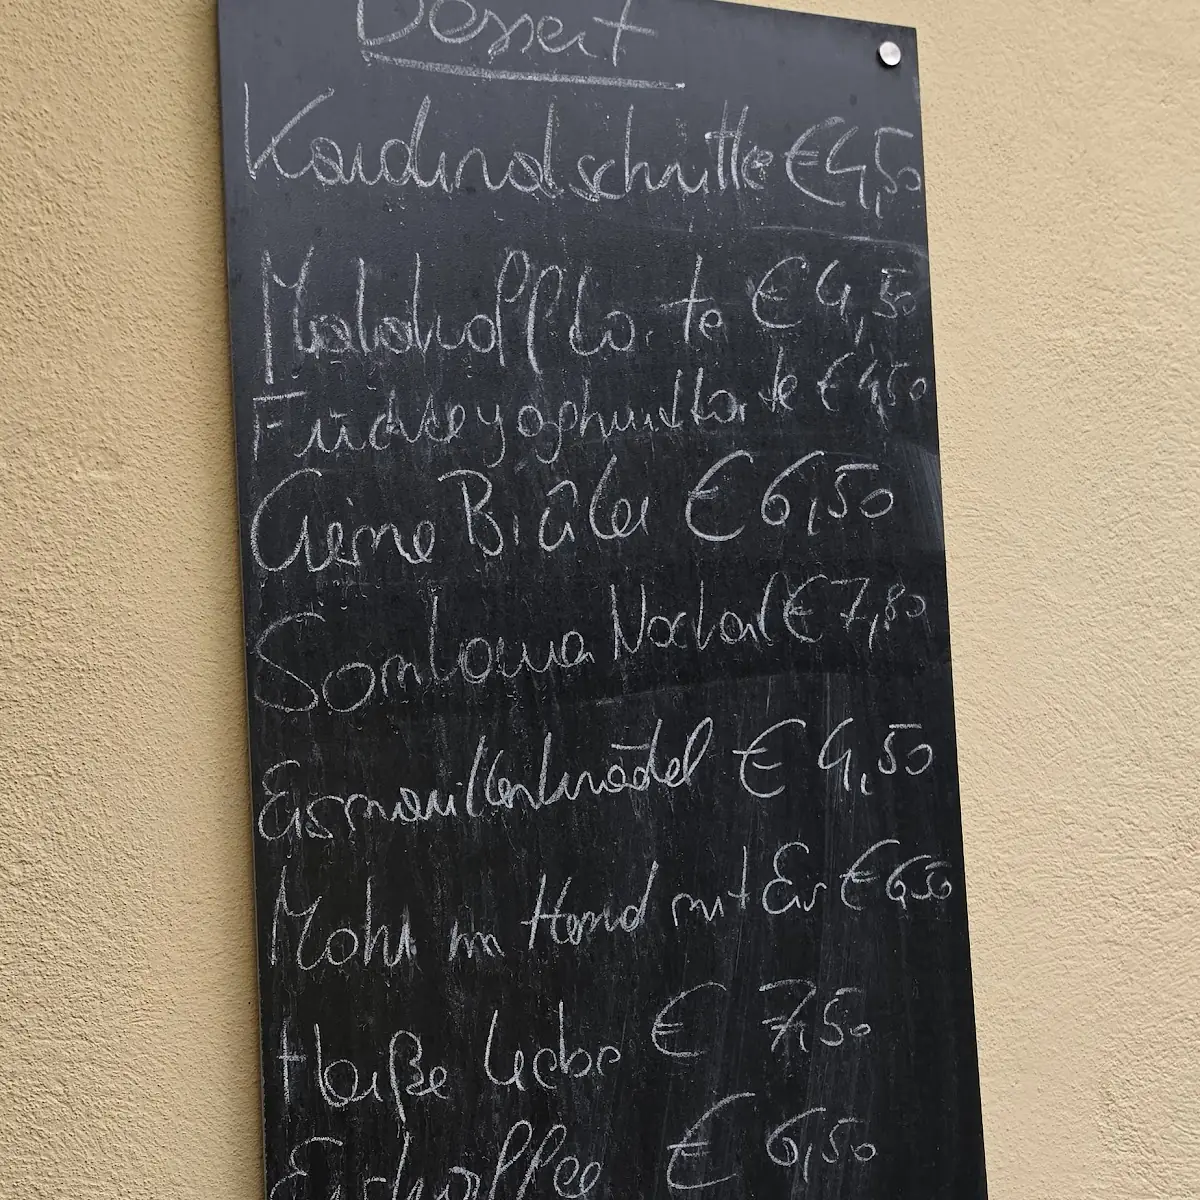 Dessert
Kardinalschnitte € 4,50
Malakofftorte € 4,50
Früchtejoghurttorte € 4,50
Creme Brûlee € 6,50
Somlauer Nockerl € 7,80
Eismarillenknödel € 4,50
Mohr im Hemd mit Eis € 6,50
Heiße Liebe € 7,50
Eiskaffee € 6,50